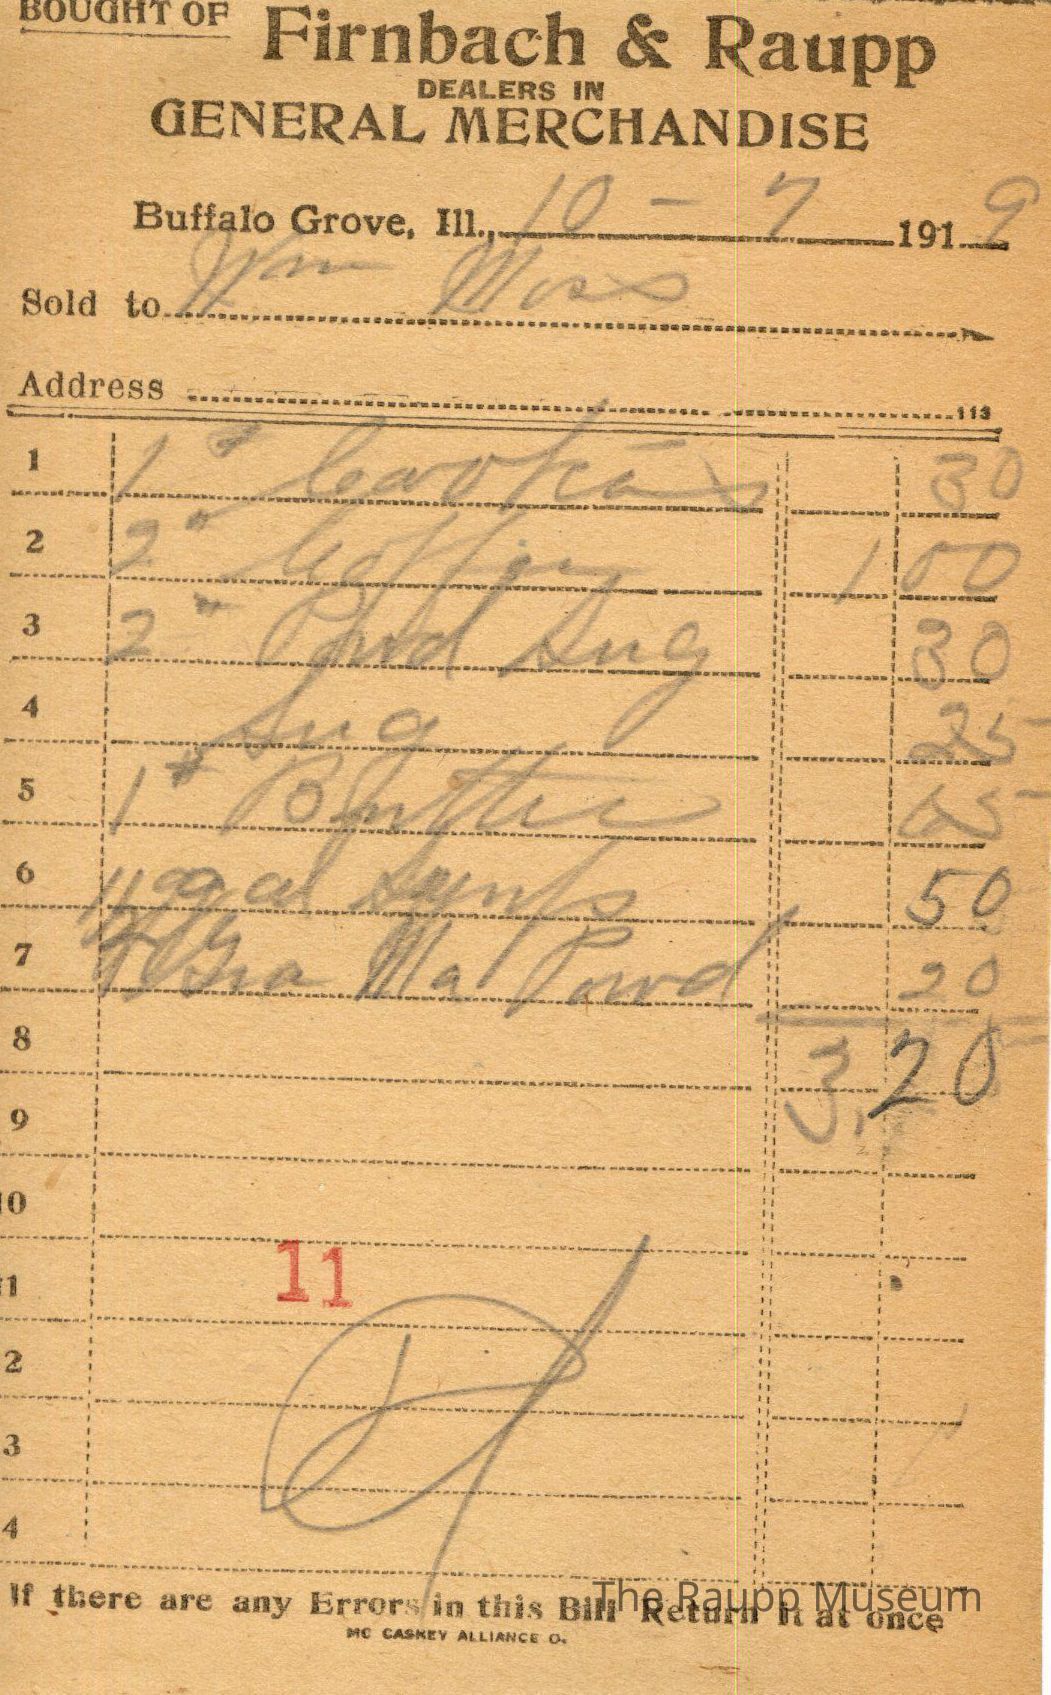 BOUGHT OF
Firnbach & Raupp
DEALERS IN
GENERAL MERCHANDISE
Buffalo Grove, Ill., 10 - 7 1919
Sold to Wm Moss
Address
113
1 1 # Cookies 30
2 2 " Coffey 1 00
3 2 " Powd Sug 30
4 Sug 25
5 1 # Butter 65
6 gal Syrup 50
7 Gra Ma Powd 20
8 3.20
9
10
11
11
2
3
4
If there are any Errors in this Bill Return it at once
MC CASKEY ALLIANCE O.
The Raupp Museum